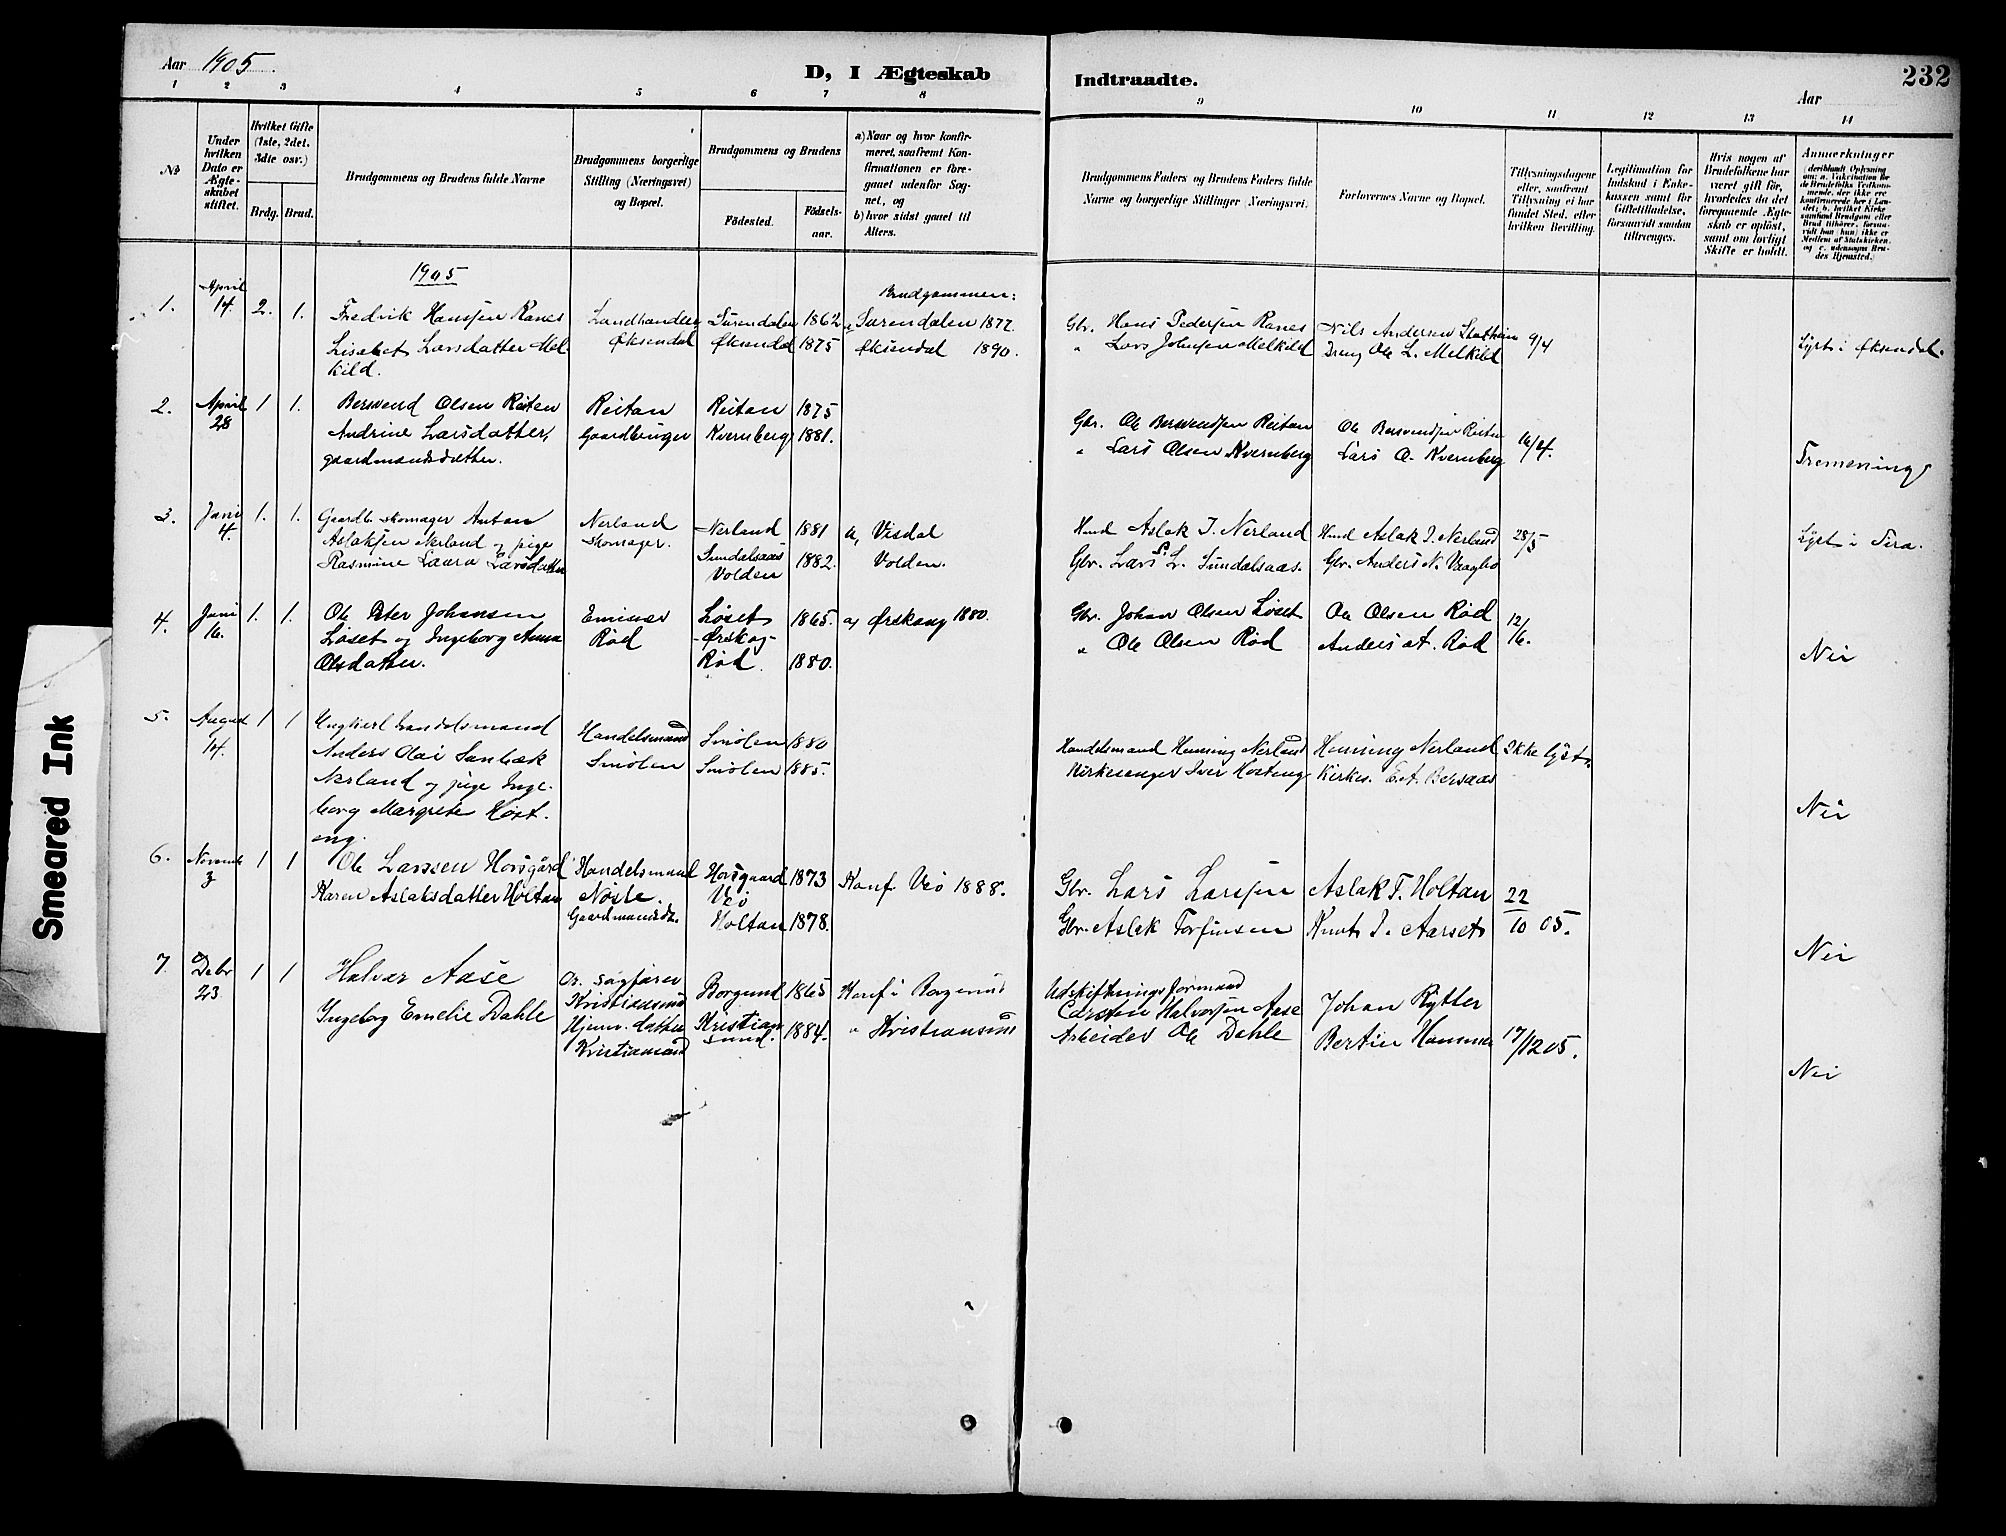 Aar 1905.
D, I Ægteskab
Indtraadte.
232
Aar
1 2 3 4 5 6 7 8 9 10 11 12 13 14
No
Under hvilken Dato er Ægteskabet stiftet.
Hvilket Gifte (1ste, 2det, 3die osv.)
Brdg. Brud.
Brudgommens og Brudens fulde Navne
Brudgommens borgerlige Stilling (Næringsvei) og Bopæl.
Brudgommens og Brudens
Födested. Födsels-aar.
a) Naar og hvor konfirmeret, saafremt Konfirmationen er foregaaet udenfor Sognet, og
b) hvor sidst gaaet til Alters.
Brudgommens Faders og Brudens Faders fulde Navne og borgerlige Stillinger (Næringsvei).
Forlovernes Navne og Bopæl.
Tillysningsdagene eller, saafremt Tillysning ei har fundet Sted, efter hvilken Bevilling.
Legitimation for Indskud i Enkekassen samt for Giftetilladelse, forsaavidt saadan tiltrænges.
Hvis nogen af Brudefolkene har været gift før, hvorledes da det foregaaende Ægteskab er opløst, samt om lovligt Skifte er holdt.
Anmærkninger
1905
1. April 14. 2. 1. Fredrik Hanssen Ranes
Lisabet Larsdatter Melkild.
Landhandler Øksendal
Surendalen 1862
Øksendal 1875
Brudgommen:
Surendalen 1877.
Øksendal 1890.
Gbr. Hans Pedersen Ranes
" Lars Johnsen Melkild
Nils Andersen
Dreng Ole L. Melkild
9/4
Lyst i Øksendal.
2. April 28 1 1. Bersvend Olsen Reiten
Andrine Larsdatter,
gaardmandsdatter.
Reitan
Gaardbruger
Reitan 1875
Kvernberg 1881.
Gbr. Ole Bersvendsen Reitan
" Lars Olsen Kvernberg
Ole Bersvendsen
Lars O. Kvernberg
16/4.
Tremening
3. Juni 4. 1. 1. Gaardb. skomager Anton
Aslaksen Nerland og pige
Rasmine Laura Larsdatter
Nerland
skomager.
Nerland 1881
Sundalsaas
Volden 1882.
a, Visdal
Volden.
Hmd Aslak I. Nerland
Gbr. Lars L. Sundalsaas.
Hmd Aslak I. Nerland
Gbr. Anders N. Vaagbø
28/5
Lyst i
4. Juni 16. 1. 1. Ole Peter Johansen
Løset og Ingeborg Anna
Olsdatter.
Rød
Løset 1865.
Ørskog
Rød 1880.
a, Ørskaug 1880.
Gbr. Johan Olsen Løset
" Ole Olsen Rød
Ole Olsen Rød
Anders A. Rød
12/16.
Nei
5. August 14. 1 1 Ungkarl handelsmand
Anders Olai
Nerland og pige Ingeborg Margrete
Handelsmand
Smølen
Smølen 1880
Smølen 1885.
Handelsmand Henning Nerland
Kirkesanger Iver
Henning Nerland
Kirkes. E. A. Bersaas
Ikke lyst.
Nei
6. Novemb 3 1 1 Ole Larssen Horsgård
Karen Aslaksdatter Holtan
Handelsmand
Nøste.
Gaardmandsdt.
Horsgaard 1873
Veø
Holtan 1878.
Konf. Veø 1888.
Gbr. Lars Larssen
Gbr. Aslak Torfinsen
Aslak T. Holtan
Knut I. Aarset
22/10 05.
Nei
7. Debr 23 1 1 Halvar Aase
Ingeborg Emelie Dahle
Or. sagfører
Kristianssund
Hjemv. datter
Kristianssund
Borgund 1865
Kristianssund. 1884.
Konf i Borgund
" Kristianssund
Udskiftningsformand
Carsten Halvorsen Aase
Arbeider Ole Dahle
Johan Rytter
Bertin Hammer
17/12 05.
Nei
Smeared Ink